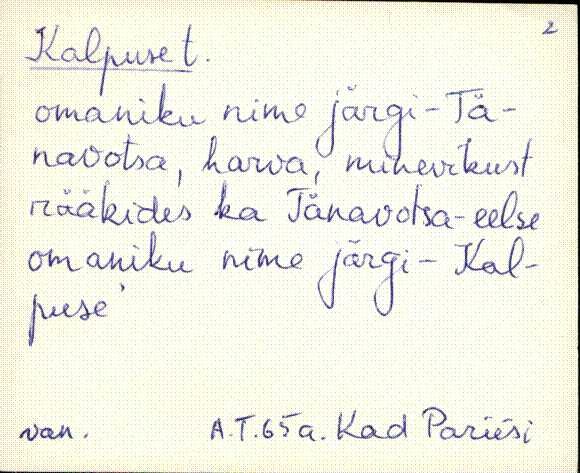 2
Kalpuse t.
omaniku nime järgi - Tä-
navotsa, harva, minevikust
rääkides ka Tänavotsa-eelse
omaniku nime järgi - Kal-
puse'
van. A.T. 65 a. Kad Pariisi